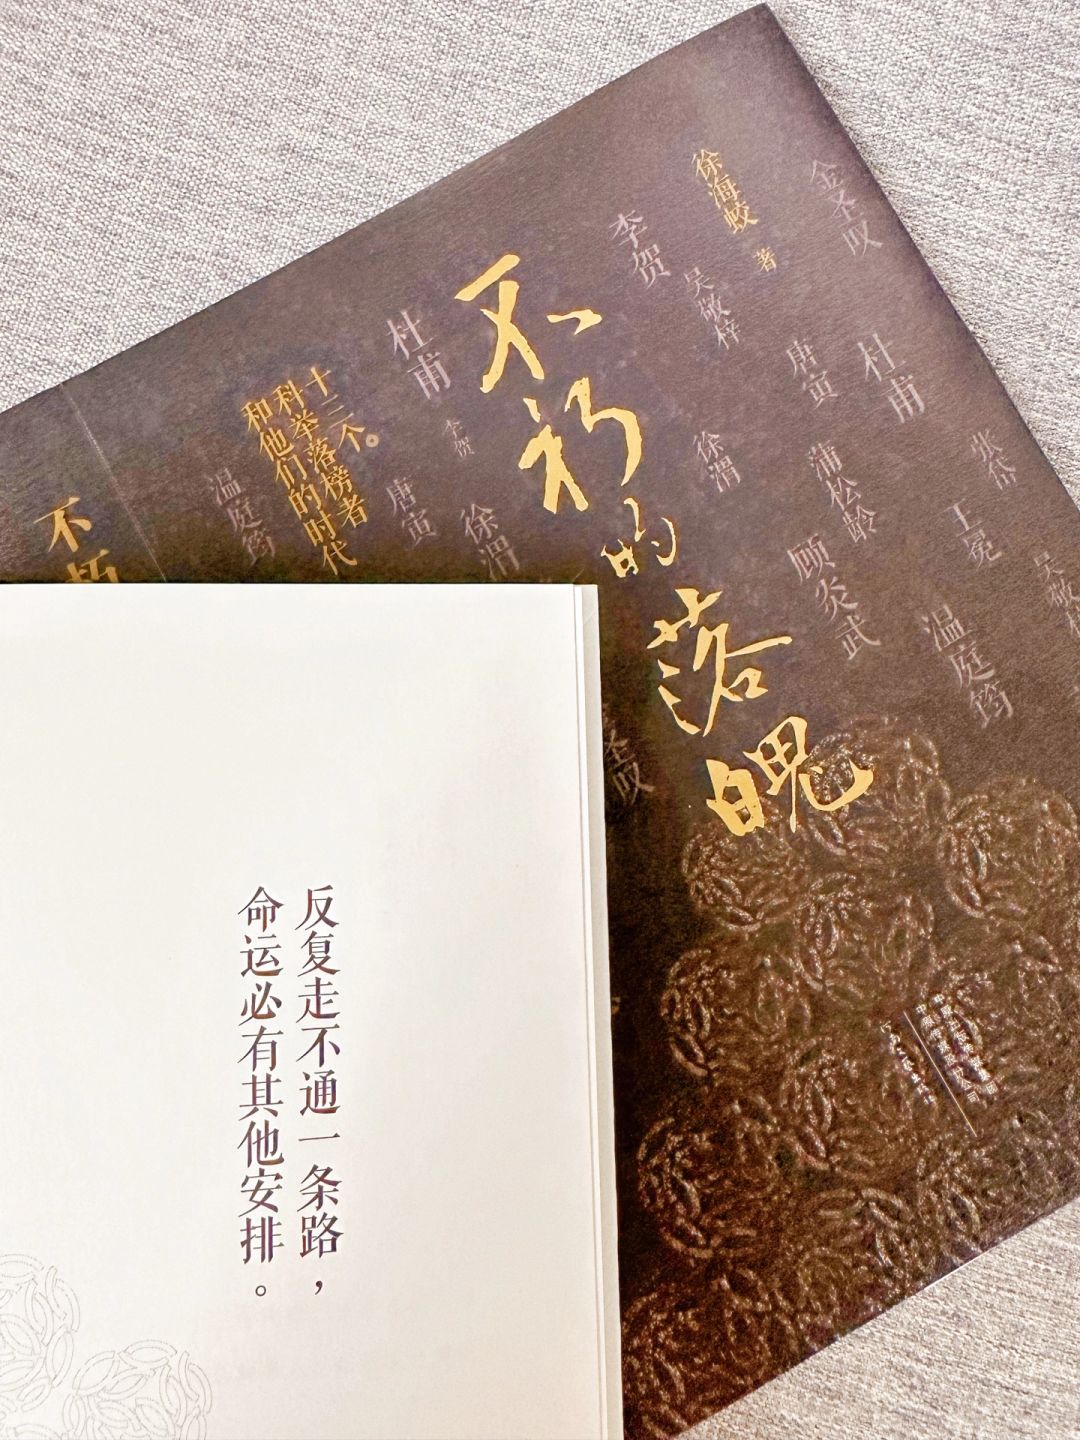 不朽的落魄
徐海蛟 著
十三个。
科举落榜者
和他们的时代
金圣叹
李贺
吴敬梓
唐寅
杜甫
张岱
徐渭
蒲松龄
王冕
吴敬梓
顾炎武
温庭筠
杜甫
李贺
唐寅
徐渭
温庭筠
圣叹
不朽
反复走不通一条路，
命运必有其他安排。